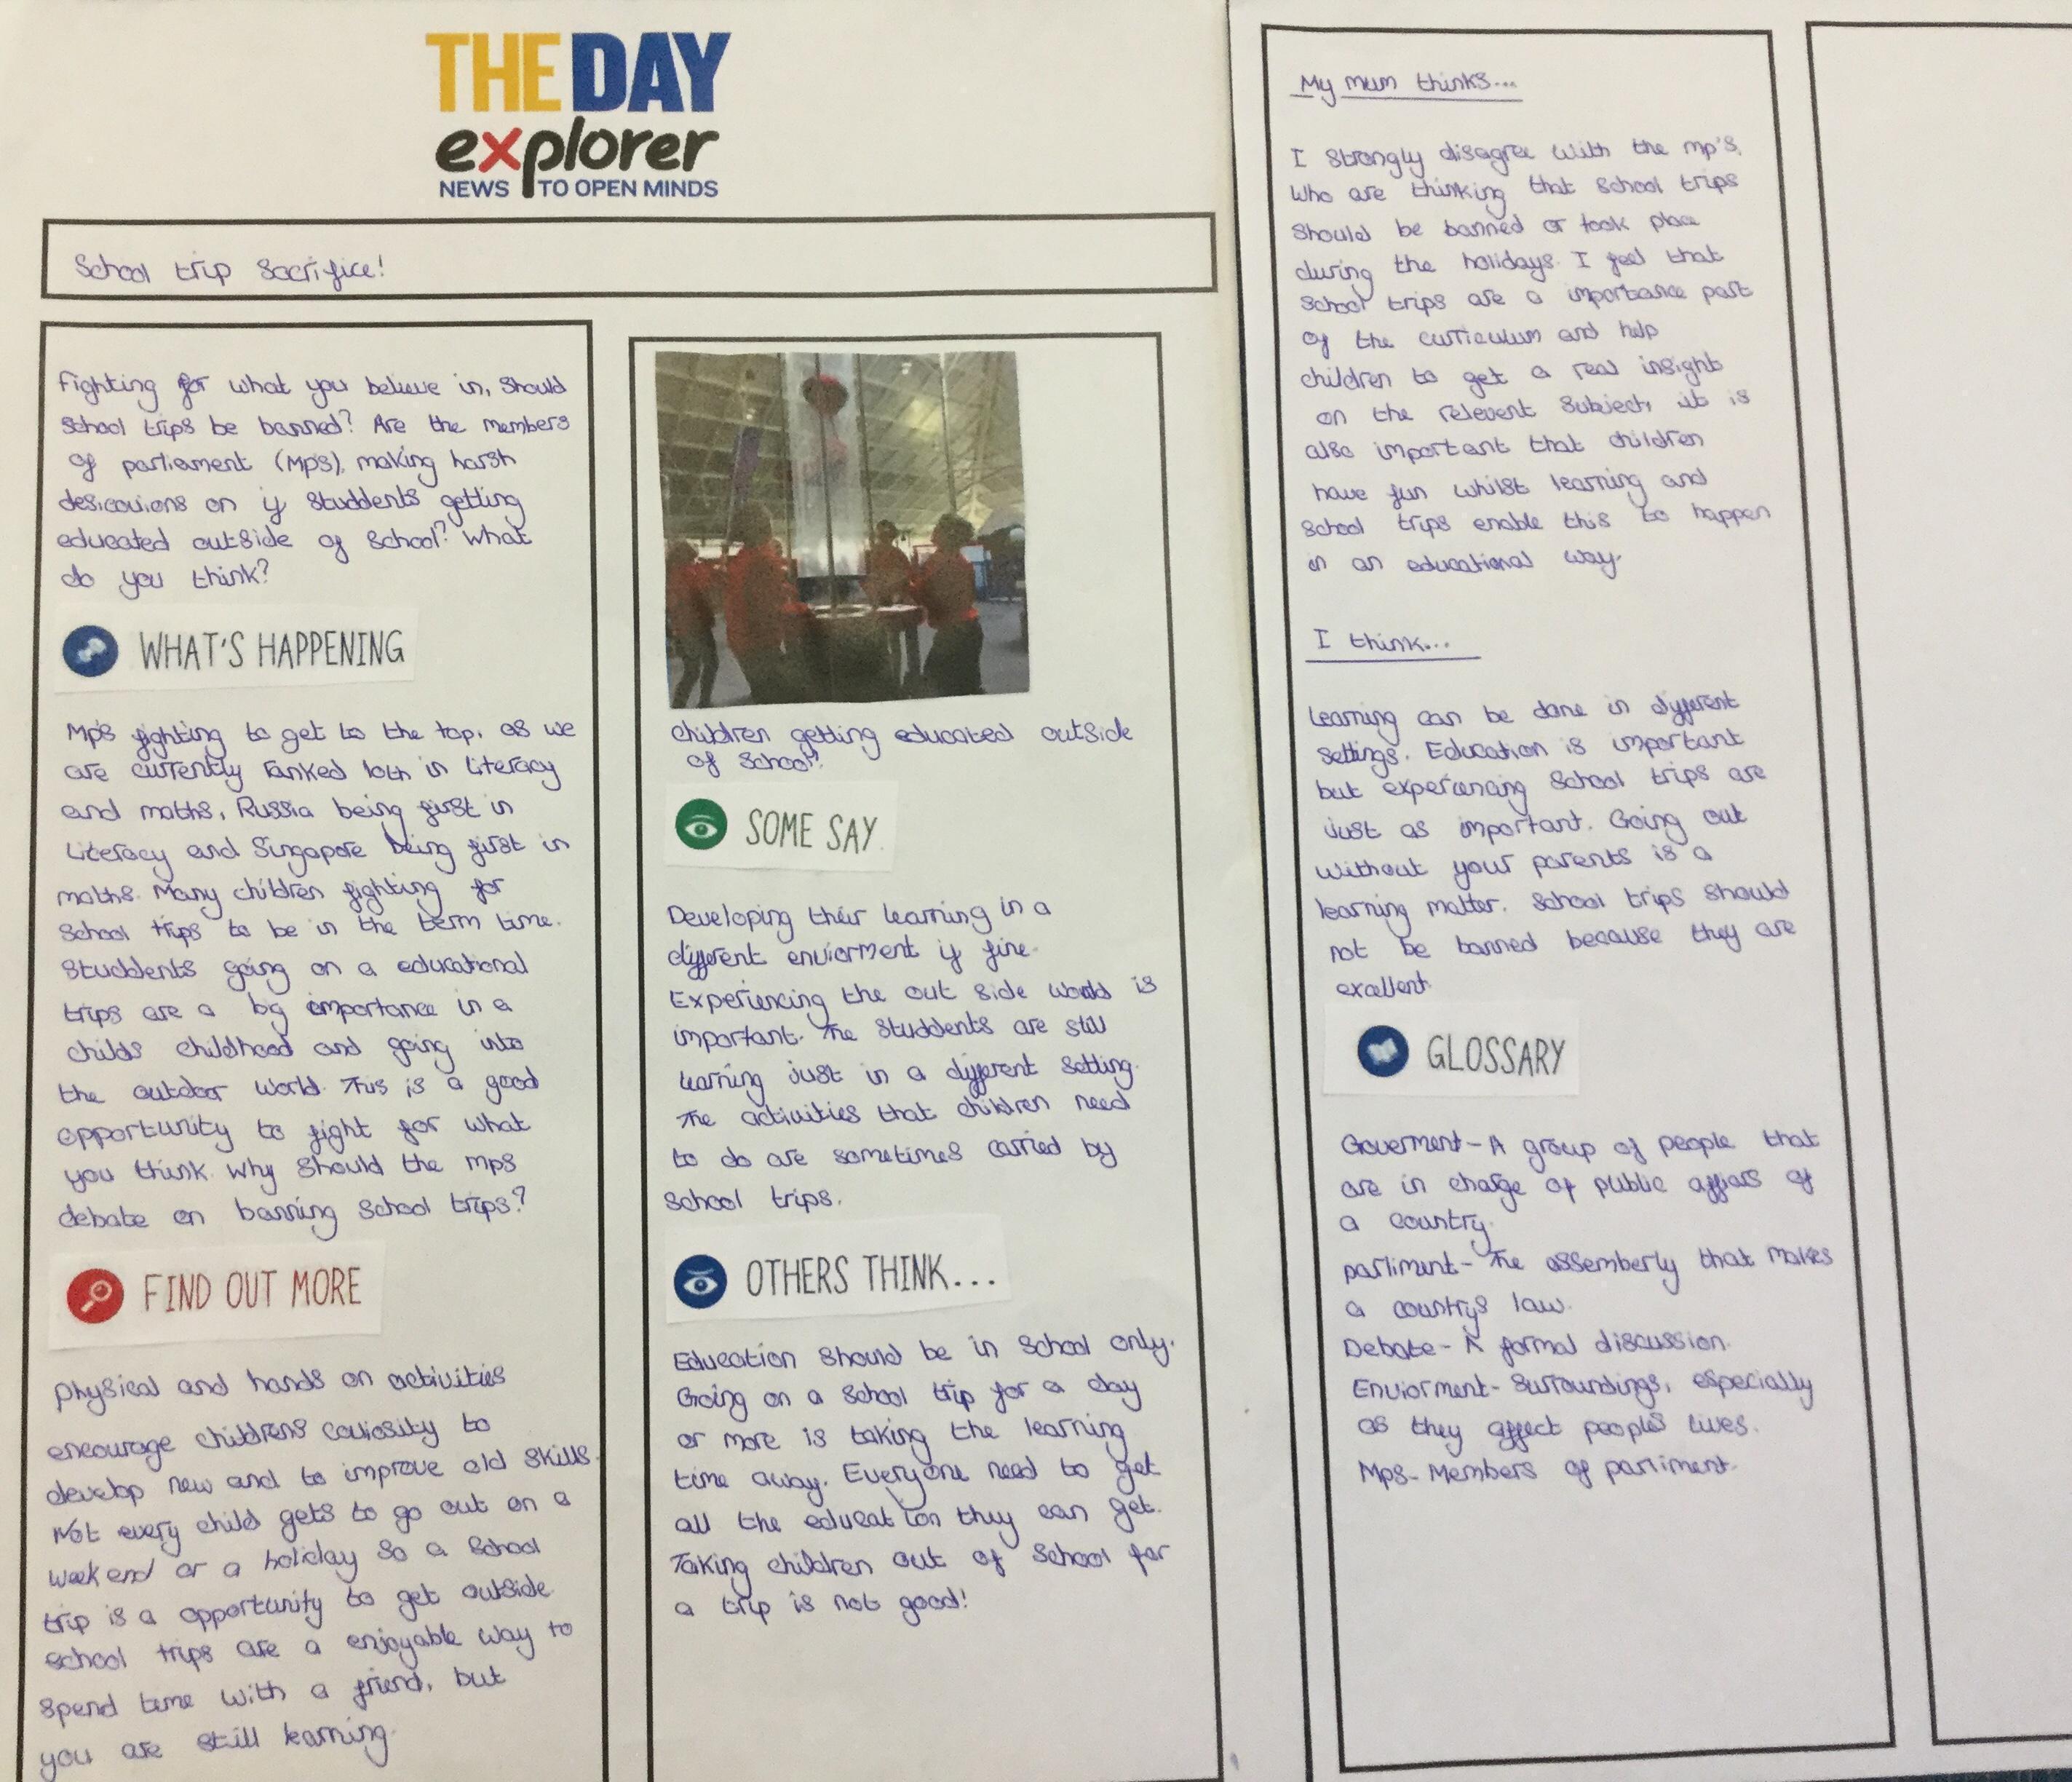 THE DAY
explorer
NEWS TO OPEN MINDS
School trip Sacrifice!
Fighting for what you believe in, Should
School trips be banned? Are the members
of parliement (Mps), making harsh
desicouions on if Studdents getting
educated outside of School? What
do you think?
WHAT'S HAPPENING
Mps fighting to get to the top, as we
are currently ranked 10th in Literacy
and maths, Russia being first in
Literacy and Singapore being first in
maths. Many children fighting for
School trips to be in the term time.
Studdents going on a educational
trips are a big importance in a
childs childhood and going into
the outdoor world. This is a good
opportunity to fight for what
you think. Why Should the mps
debate on banning School trips?
FIND OUT MORE
Physical and hands on activities
encourage childrens couriosity to
develop new and to improve old skills.
Not every child gets to go out on a
weekend or a holiday so a School
trip is a opportunity to get outside.
School trips are a enjoyable way to
spend time with a friend, but
you are still learning.
children getting educated outside
of School!
SOME SAY
Developing their learning in a
different enviorment if fine.
Experiencing the out side world is
important. The Studdents are still
learning just in a different setting.
The activities that children need
to do are sometimes carried by
School trips.
OTHERS THINK...
Education Should be in School only.
Going on a School trip for a day
or more is taking the learning
time away. Everyone need to get
all the education they can get.
Taking children out of School for
a trip is not good!
My mum thinks...
I Strongly disagree with the mp's,
Who are thinking that School trips
Should be banned or took place
during the holidays. I feel that
School trips are a importance part
of the curriculum and help
children to get a real insight
on the relevent Subject, it is
also important that children
have fun whilst learning and
School trips enable this to happen
in an educational way.
I think...
Learning can be done in different
settings. Education is important
but experiancing School trips are
just as important. Going out
Without your parents is a
learning matter. School trips Should
not be banned because they are
exallent.
GLOSSARY
Goverment- A group of people that
are in charge of public affiars of
a country.
parliment- The assemberly that makes
a countrys law.
Debate- A formal discussion.
Enviorment- Surroundings, especially
as they affect people's lives.
Mps- Members of parliment.